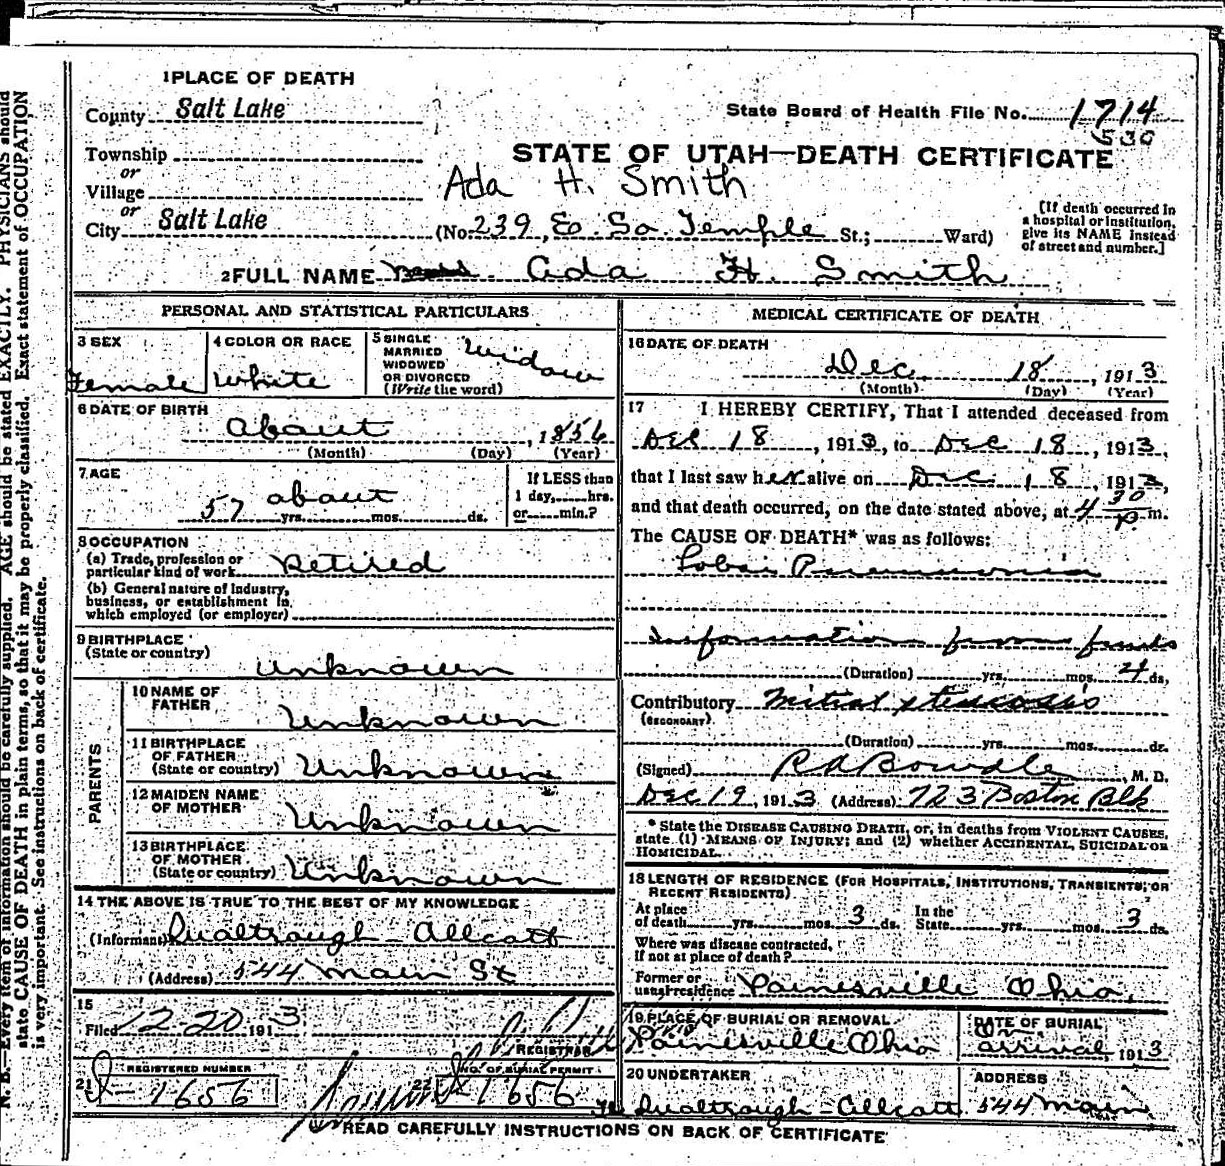 1 PLACE OF DEATH
County Salt Lake
State Board of Health File No. 1714
530
Township
or
Village
or
City Salt Lake
STATE OF UTAH—DEATH CERTIFICATE
Ada H. Smith
(No. 239, Eo. So. Temple St.; Ward)
[If death occurred in
a hospital or institution,
give its NAME instead
of street and number.]
2 FULL NAME Ada H. Smith
PERSONAL AND STATISTICAL PARTICULARS
3 SEX
Female
4 COLOR OR RACE
White
5 SINGLE
MARRIED
WIDOWED
OR DIVORCED
(Write the word)
Widow
6 DATE OF BIRTH
about , 1856
(Month) (Day) (Year)
7 AGE
about
57 yrs. mos. ds.
If LESS than
1 day, hrs.
or min.?
8 OCCUPATION
(a) Trade, profession or
particular kind of work Retired
(b) General nature of industry,
business, or establishment in
which employed (or employer)
9 BIRTHPLACE
(State or country)
Unknown
PARENTS
10 NAME OF
FATHER
Unknown
11 BIRTHPLACE
OF FATHER
(State or country) Unknown
12 MAIDEN NAME
OF MOTHER
Unknown
13 BIRTHPLACE
OF MOTHER
(State or country) Unknown
14 THE ABOVE IS TRUE TO THE BEST OF MY KNOWLEDGE
(Informant) Qualtrough-Allcott
(Address) 544 Main St
15
Filed 12-20 1913
REGISTRAR
REGISTERED NUMBER
21 1656
NO. OF BURIAL PERMIT
22 1656
MEDICAL CERTIFICATE OF DEATH
16 DATE OF DEATH
Dec 18 , 1913
(Month) (Day) (Year)
17 I HEREBY CERTIFY, That I attended deceased from
Dec 18 , 1913, to Dec 18, 1913,
that I last saw her alive on Dec 18, 1913,
and that death occurred, on the date stated above, at 4 30 P m.
The CAUSE OF DEATH* was as follows:
Lobar Pneumonia
Information from friends
(Duration) yrs. mos. 4 ds.
Contributory Mitral stenosis
(SECONDARY)
(Duration) yrs. mos. ds.
(Signed) R A Bowdle, M. D.
Dec 19, 1913 (Address) 723 Boston Blk
* State the DISEASE CAUSING DEATH, or, in deaths from VIOLENT CAUSES,
state (1) MEANS OF INJURY; and (2) whether ACCIDENTAL, SUICIDAL OR
HOMICIDAL.
18 LENGTH OF RESIDENCE (FOR HOSPITALS, INSTITUTIONS, TRANSIENTS, OR
RECENT RESIDENTS)
At place
of death yrs. mos. 3 ds.
In the
State yrs. mos. 3 ds.
Where was disease contracted,
if not at place of death?
Former or
usual residence Painesville Ohio,
19 PLACE OF BURIAL OR REMOVAL
Painesville Ohio
DATE OF BURIAL
On
arrival 1913
20 UNDERTAKER
Qualtrough-Allcott
ADDRESS
544 Main
READ CAREFULLY INSTRUCTIONS ON BACK OF CERTIFICATE
N. B.—Every item of information should be carefully supplied. AGE should be stated EXACTLY. PHYSICIANS should
state CAUSE OF DEATH in plain terms, so that it may be properly classified. Exact statement of OCCUPATION
is very important. See instructions on back of certificate.